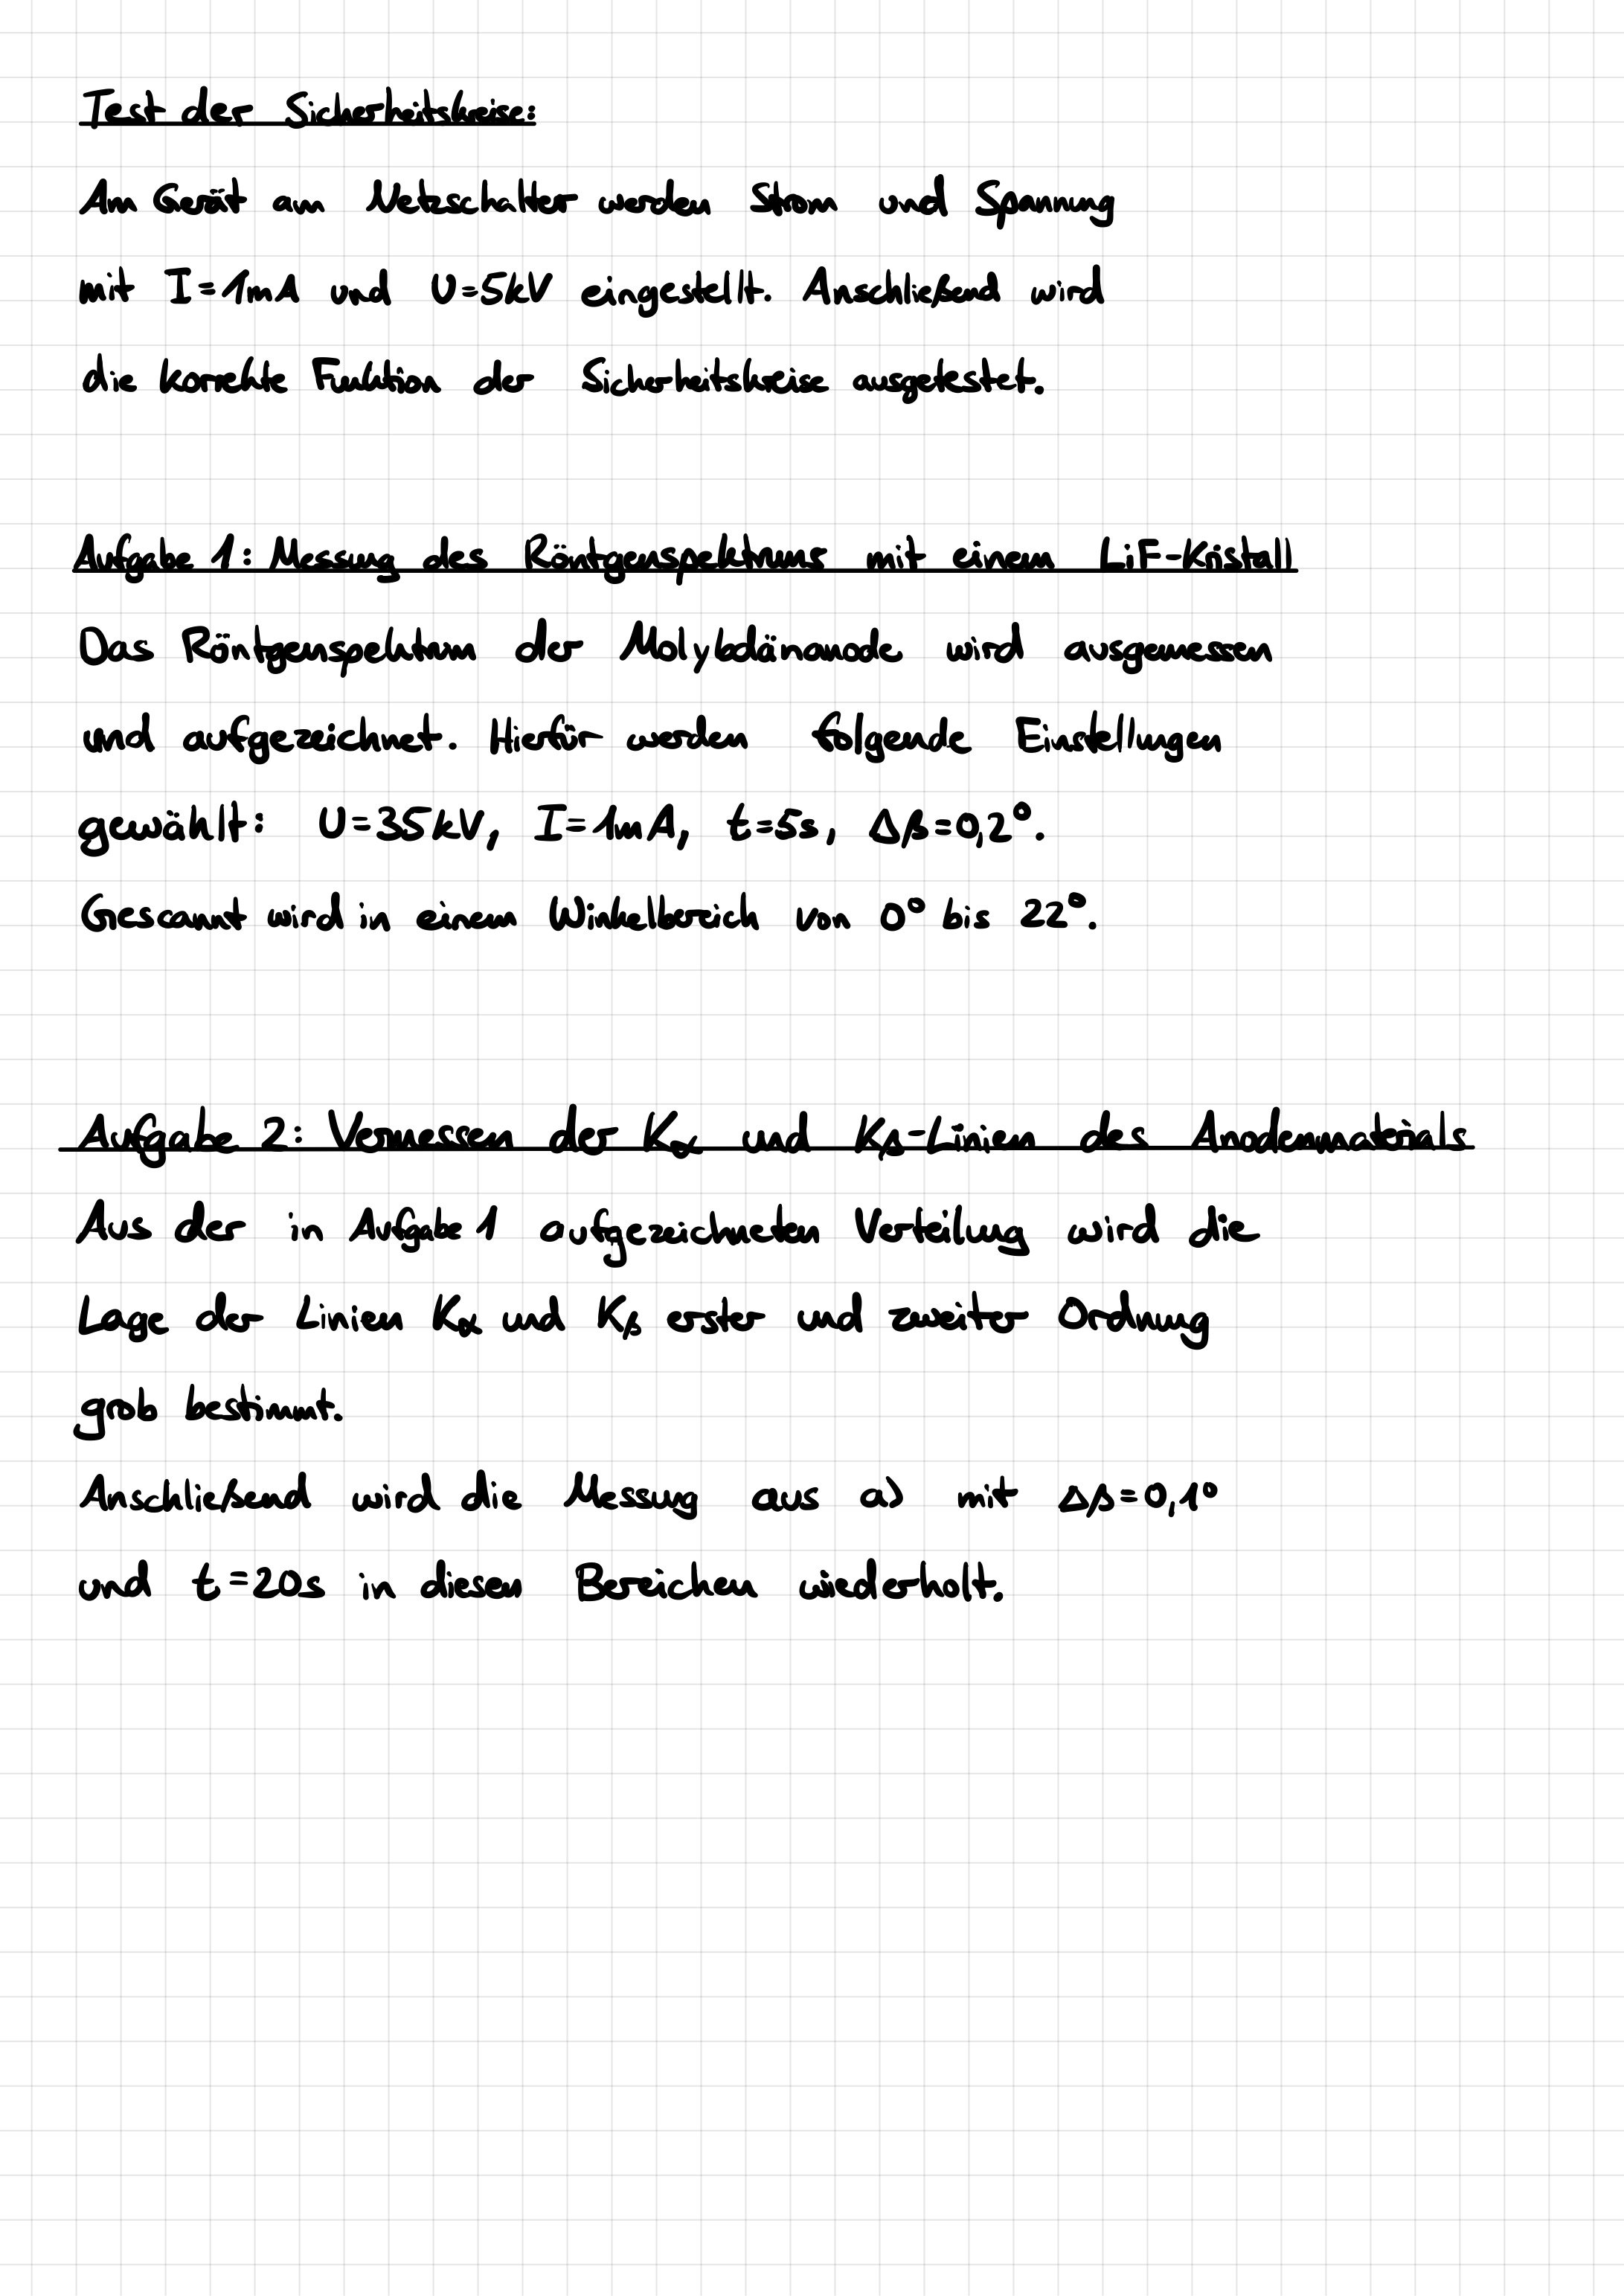 Test der Sicherheitskreise:
Am Gerät am Netzschalter werden Strom und Spannung
mit I=1mA und U=5kV eingestellt. Anschließend wird
die korrekte Funktion der Sicherheitskreise ausgetestet.
Aufgabe 1: Messung des Röntgenspektrums mit einem LiF-Kristall
Das Röntgenspektrum der Molybdänanode wird ausgemessen
und aufgezeichnet. Hierfür werden folgende Einstellungen
gewählt: U=35kV, I=1mA, t=5s, Δβ=0,2°.
Gescannt wird in einem Winkelbereich von 0° bis 22°.
Aufgabe 2: Vermessen der Kα und Kβ-Linien des Anodenmaterials
Aus der in Aufgabe 1 aufgezeichneten Verteilung wird die
Lage der Linien Kα und Kβ erster und zweiter Ordnung
grob bestimmt.
Anschließend wird die Messung aus a) mit Δβ=0,1°
und t=20s in diesen Bereichen wiederholt.